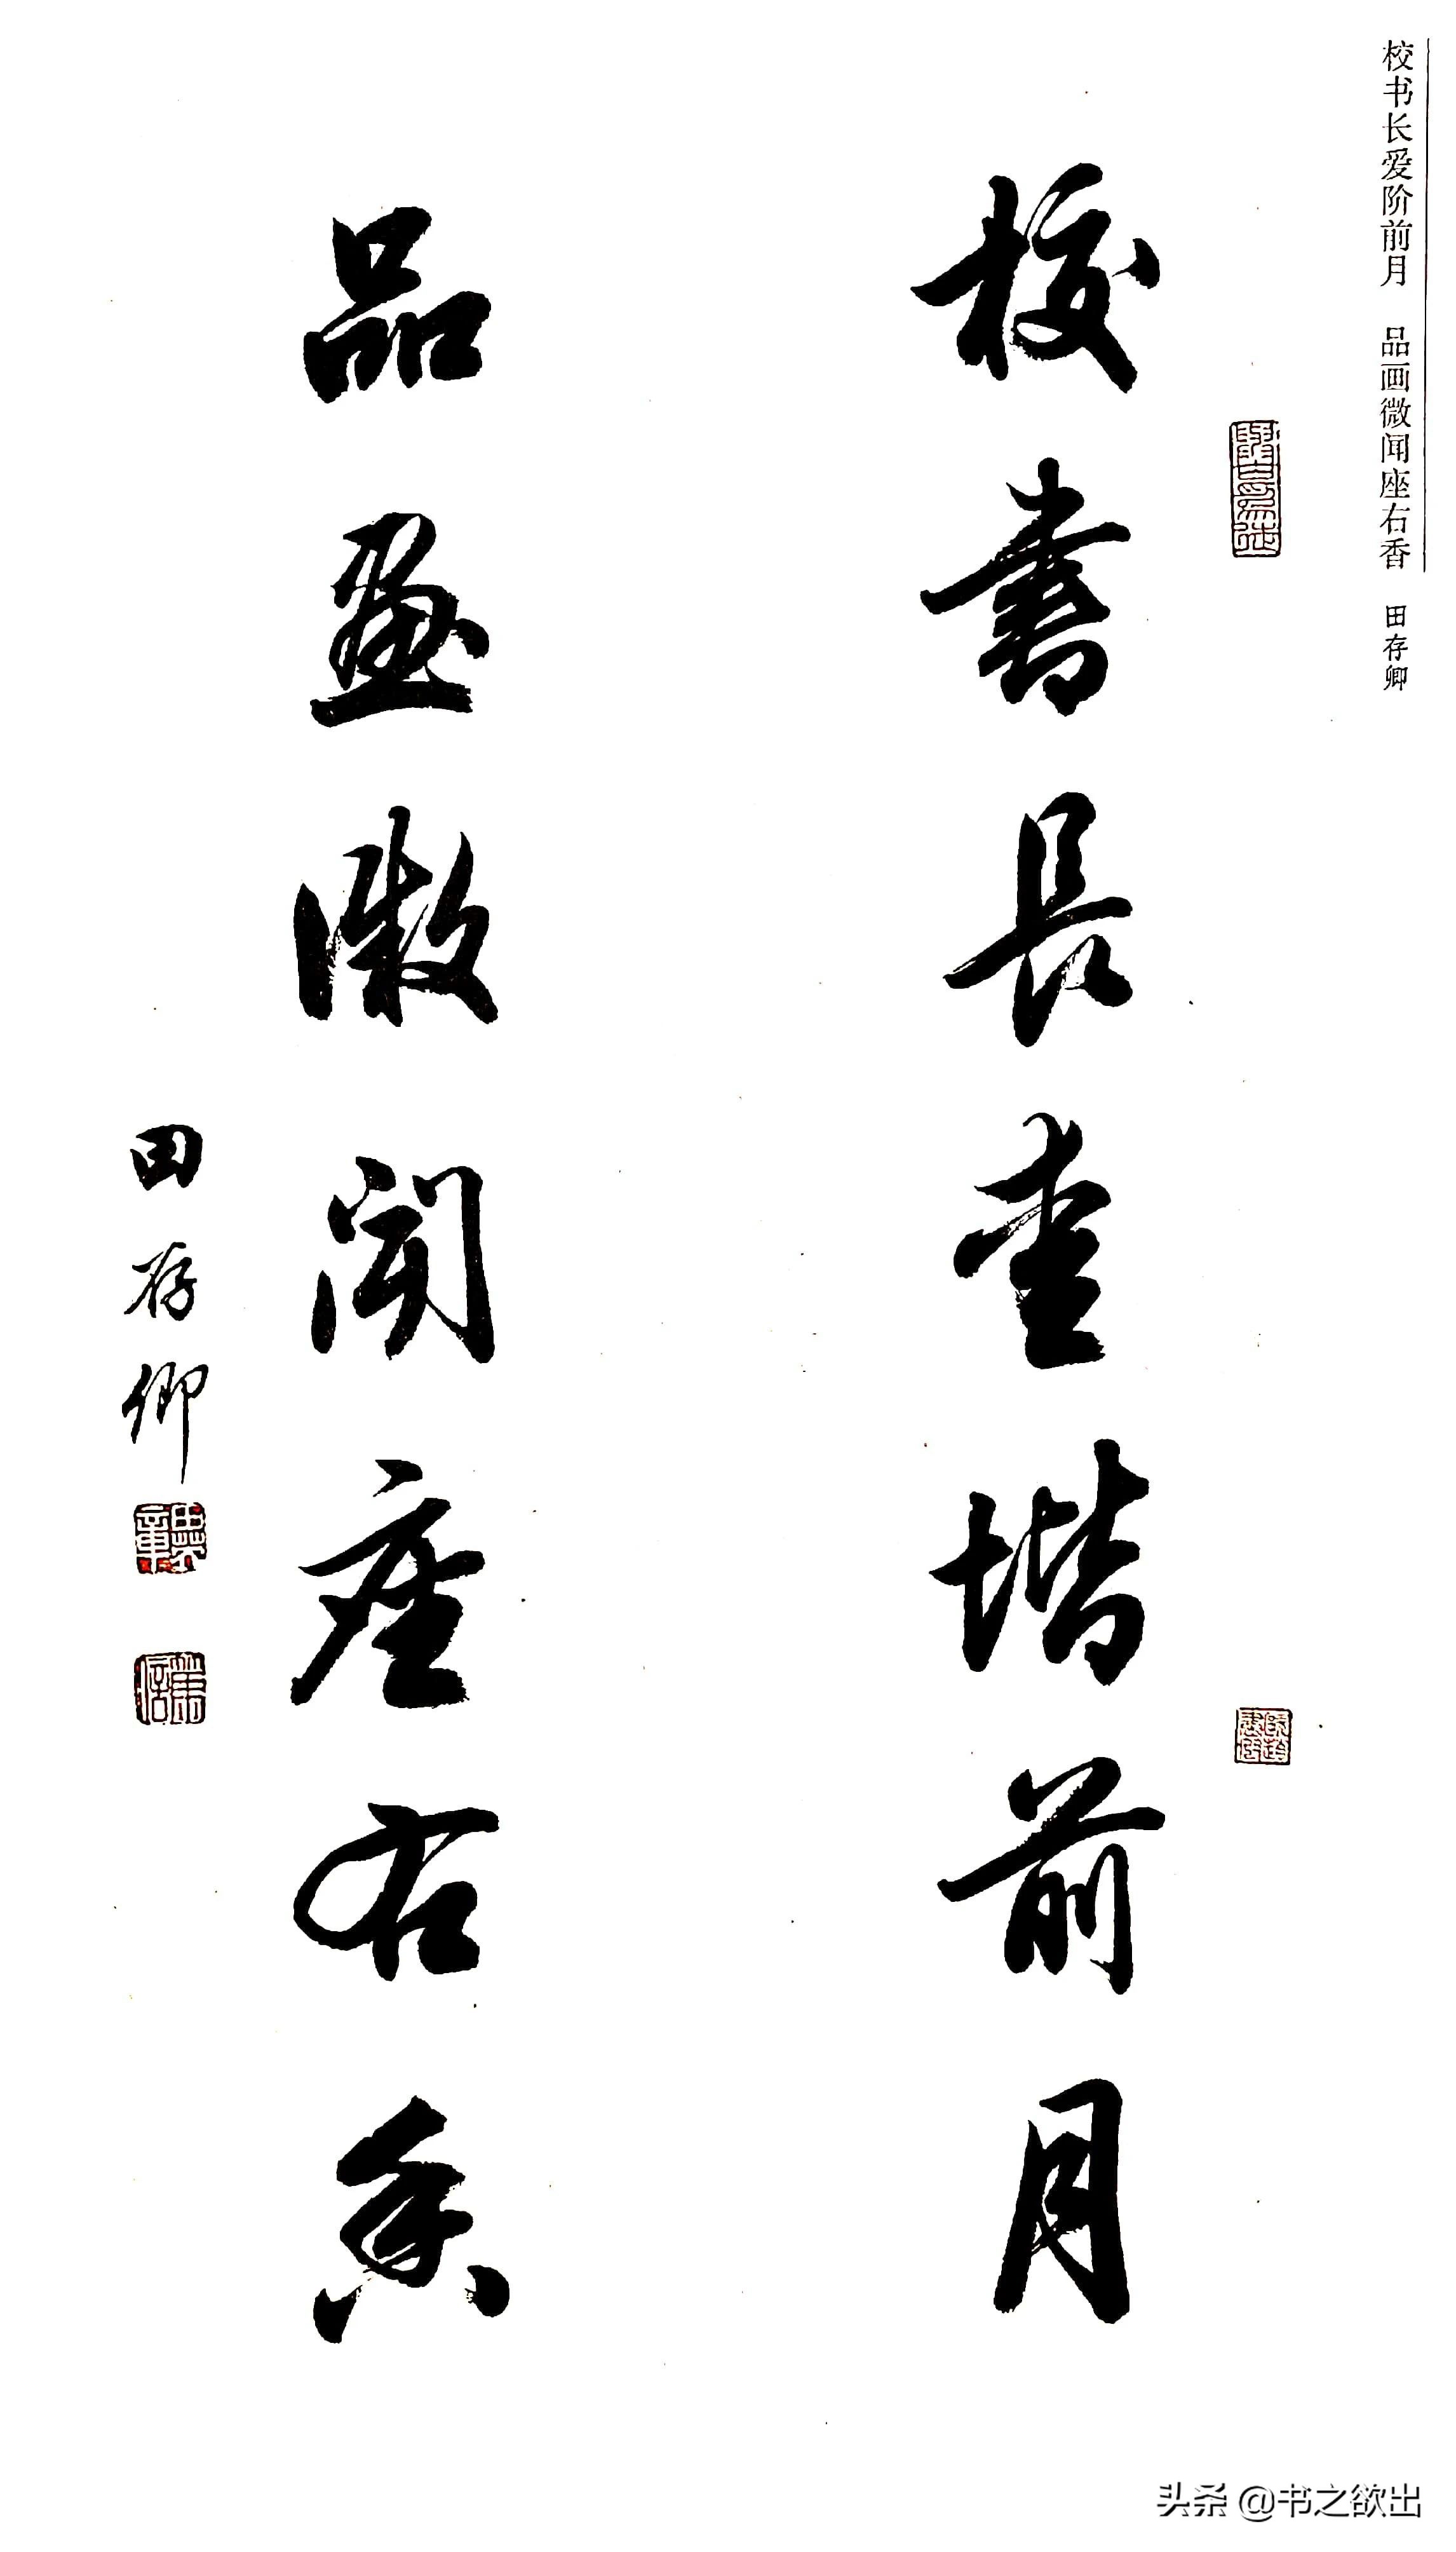 校书长爱阶前月 品画微闻座右香 田存卿
校書長愛堦前月
品畫微聞座右香
田存卿
头条 @书之欲出